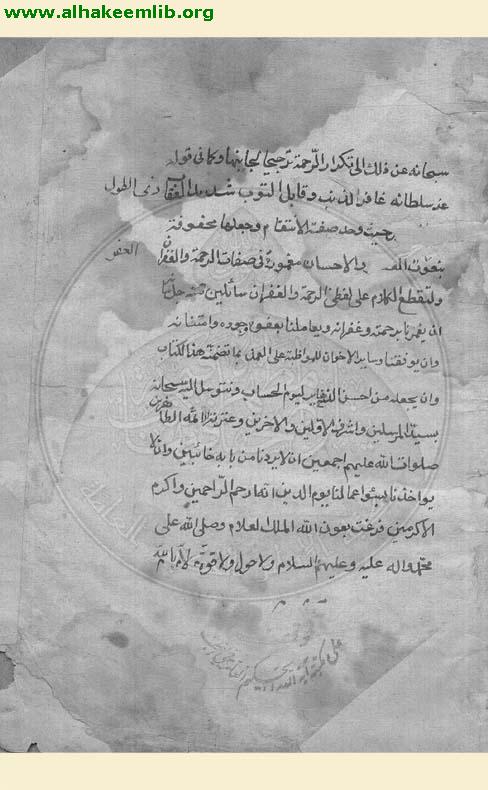 www.alhakeemlib.org
سبحانه عن ذلك الى تكرار الرحمة ترجيحا لجانبها وكما في قوله
عز سلطانه غافر الذنب وقابل التوب شديد العقاب ذي الطول
حيث وحد صفة الانتقام وجعلها محفوفة
بنعوت العفو والاحسان مغمورة في صفات الرحمة والغفران العفو
ولنقطع الكلام على لفظي الرحمة والغفران سائلين منه جل شأنه
ان يغمرنا برحمته وغفرانه ويعاملنا بعفوه وجوده وامتنانه
وان يوفقنا وساير الاخوان للمواظبة على العمل بما تضمنه هذا الكتاب
وان يجعله من احسن الذخاير ليوم الحساب ونتوسل اليه سبحانه
بسيد المرسلين واشرف الاولين والاخرين وعترته الائمة الطاهرين
صلوات الله عليهم اجمعين ان لا يردنا من بابه خائبين وان لا
يواخذنا بسوء اعمالنا يوم الدين انه ارحم الراحمين واكرم
الاكرمين فرغت بعون الله الملك العلام وصلى الله على
محمد واله عليه وعليهم السلام ولا حول ولا قوة الا بالله
مكتبة آية الله الحكيم